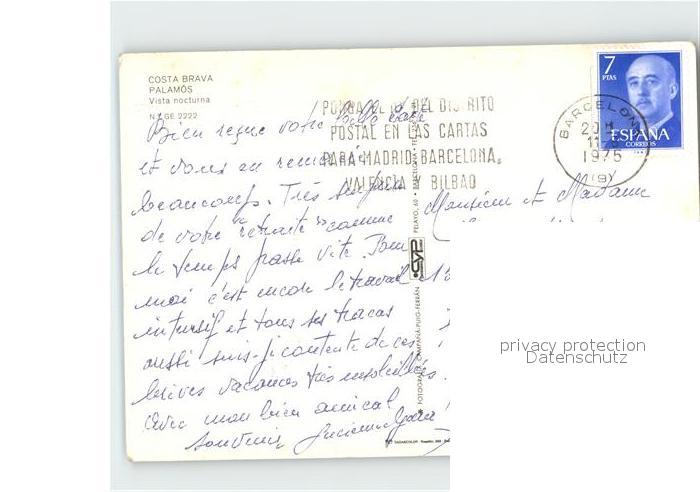 COSTA BRAVA
PALAMÓS
Vista nocturna
N.º GE 2222
PONGA EL Nº DEL DISTRITO
POSTAL EN LAS CARTAS
PARA MADRID-BARCELONA,
VALENCIA Y BILBAO
7
PTAS
ESPAÑA
CORREOS
BARCELONA
1975
(9)
Bien reçue votre belle carte
et vous en remercie
beaucoup. Très surprise
de votre "retraite" comme
le temps passe vite. Pour
moi c'est encore le travail
intensif et tous ses tracas
aussi suis-je contente de ces
brèves vacances très ensoleillées.
Avec mon bien amical
souvenir Lucienne
Monsieur et Madame
CYP
PELAYO, 60 - BARCELONA
FOTOGRAFÍA CAMPAÑÁ-PUIG-FERRÁN
privacy protection
Datenschutz